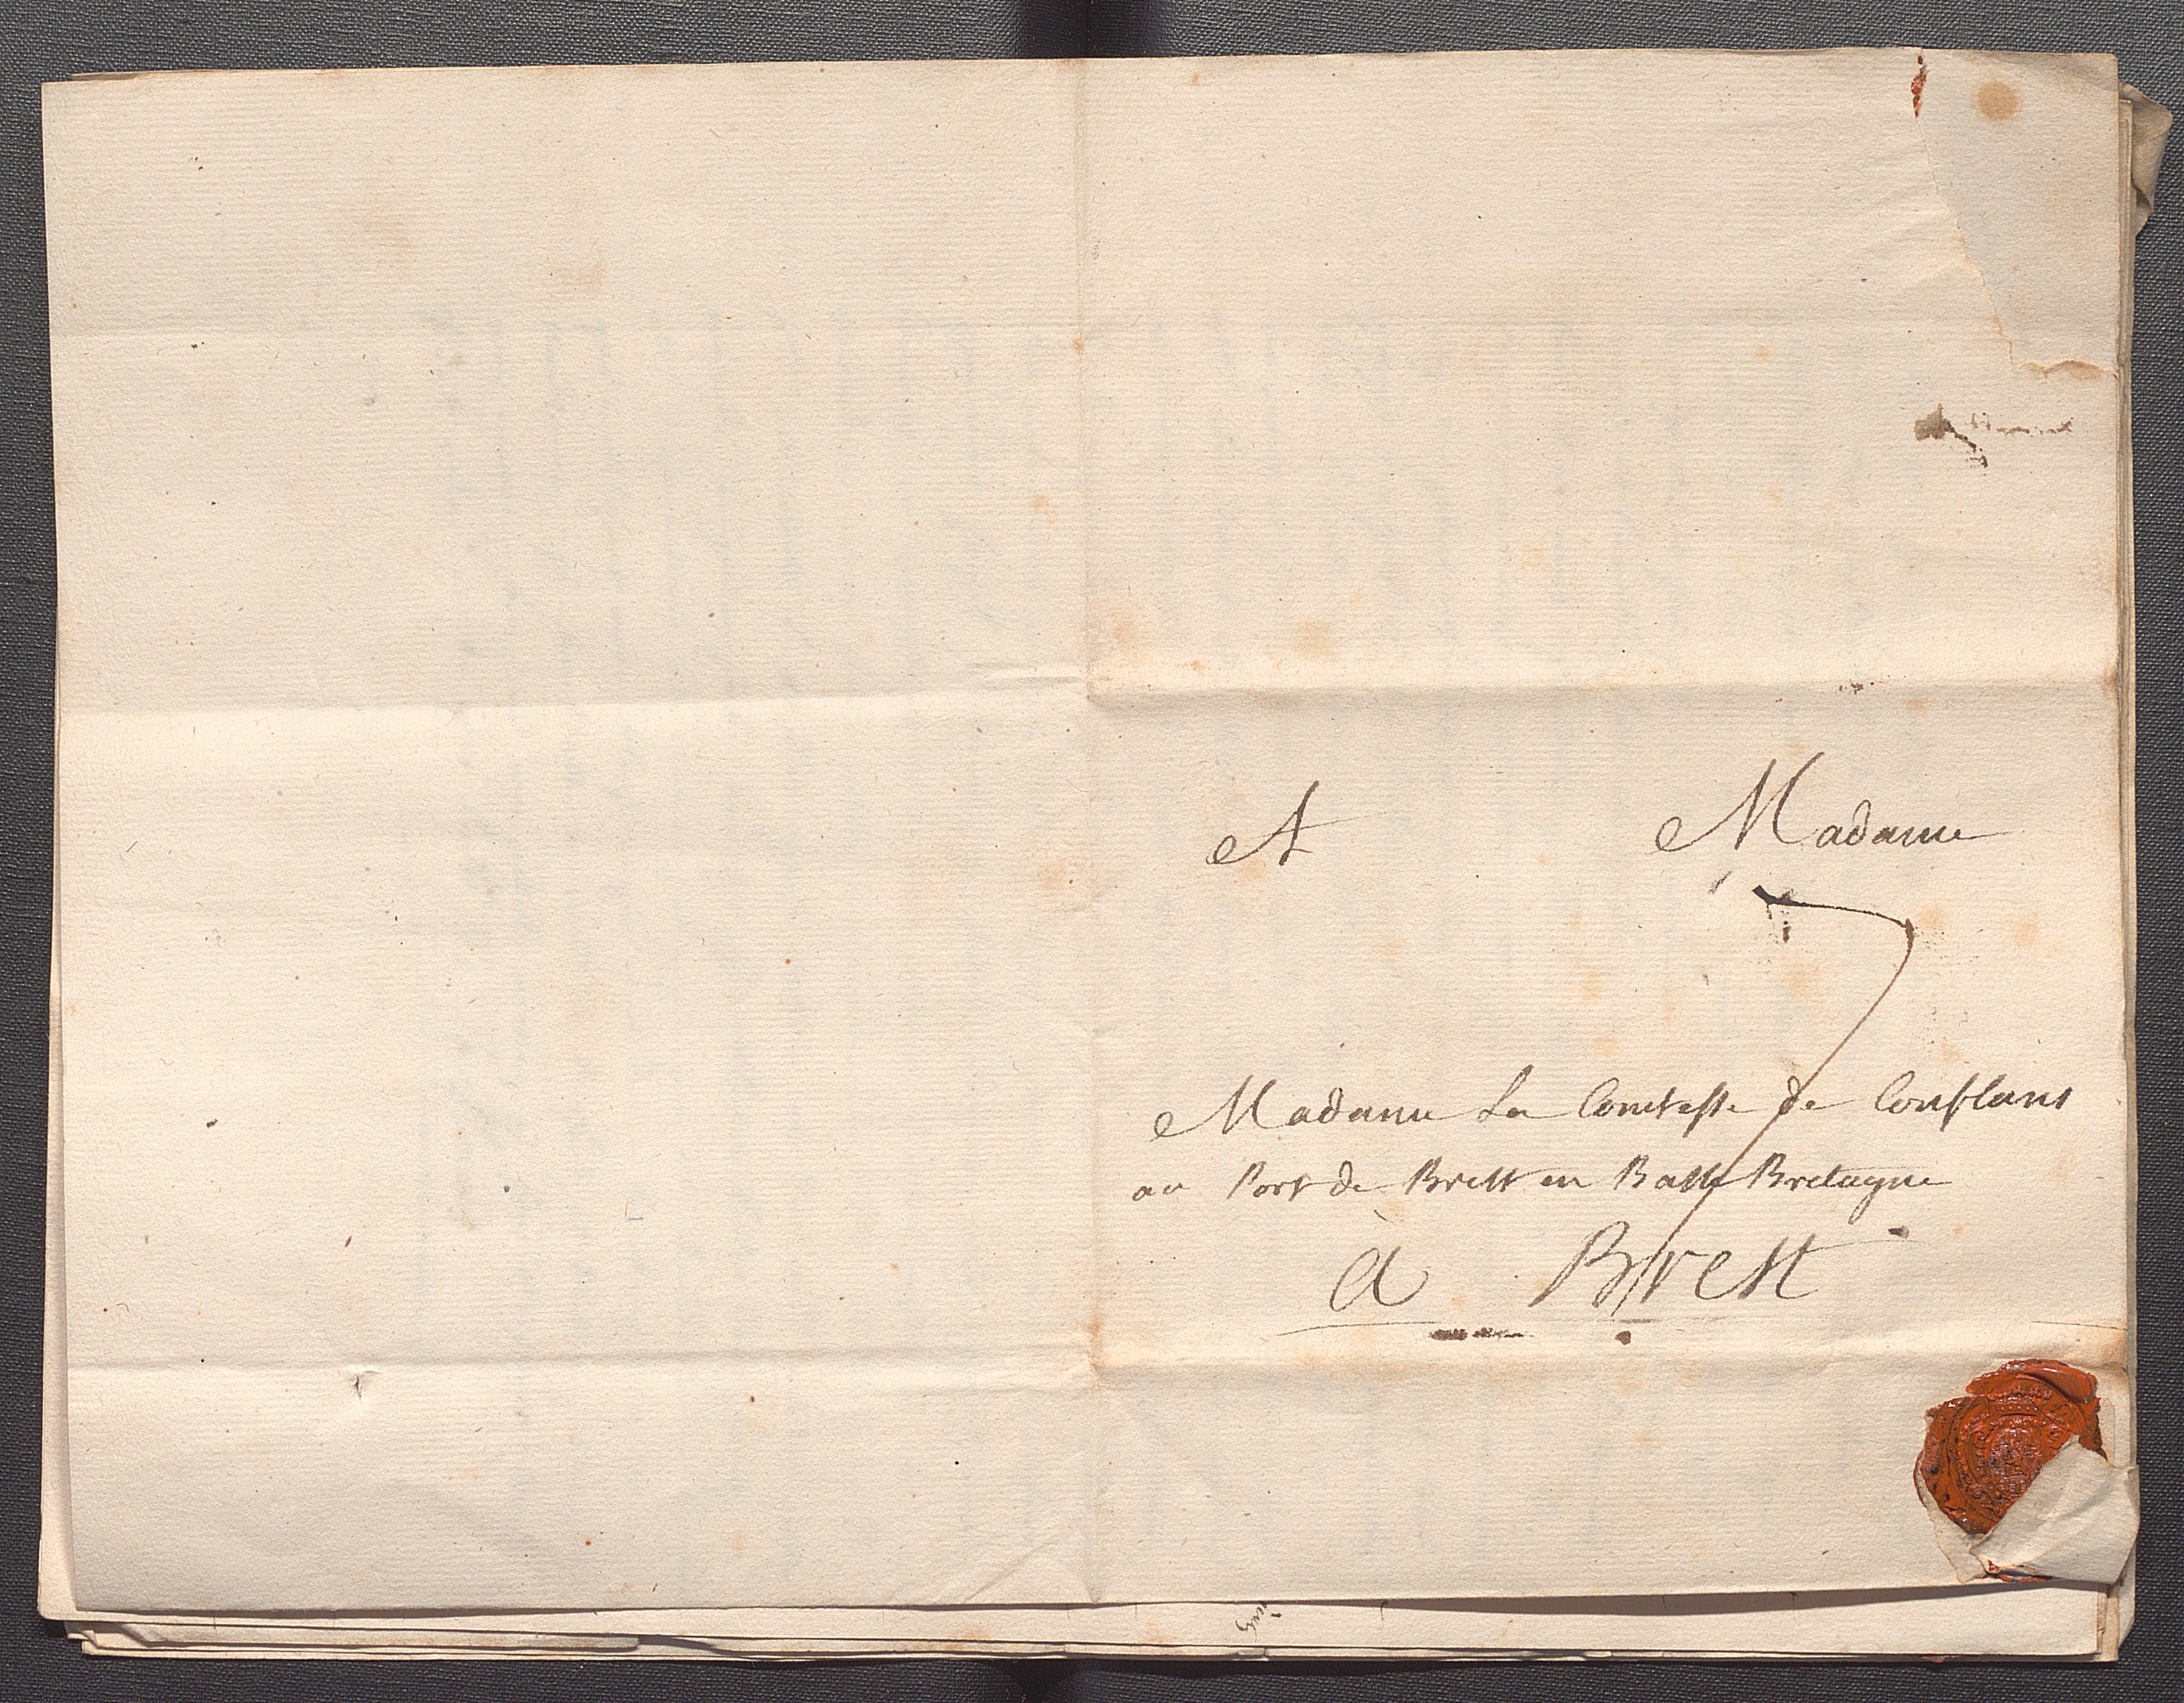 A Madame
Madame La Comtesse de Conflans
au Port de Brest en Basse Bretagne
a Brest